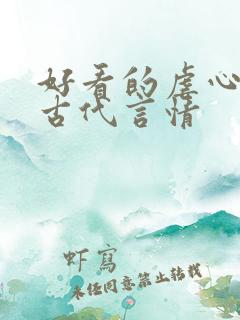 好看的虐心
古代言情
虾寫
未经同意禁止转载